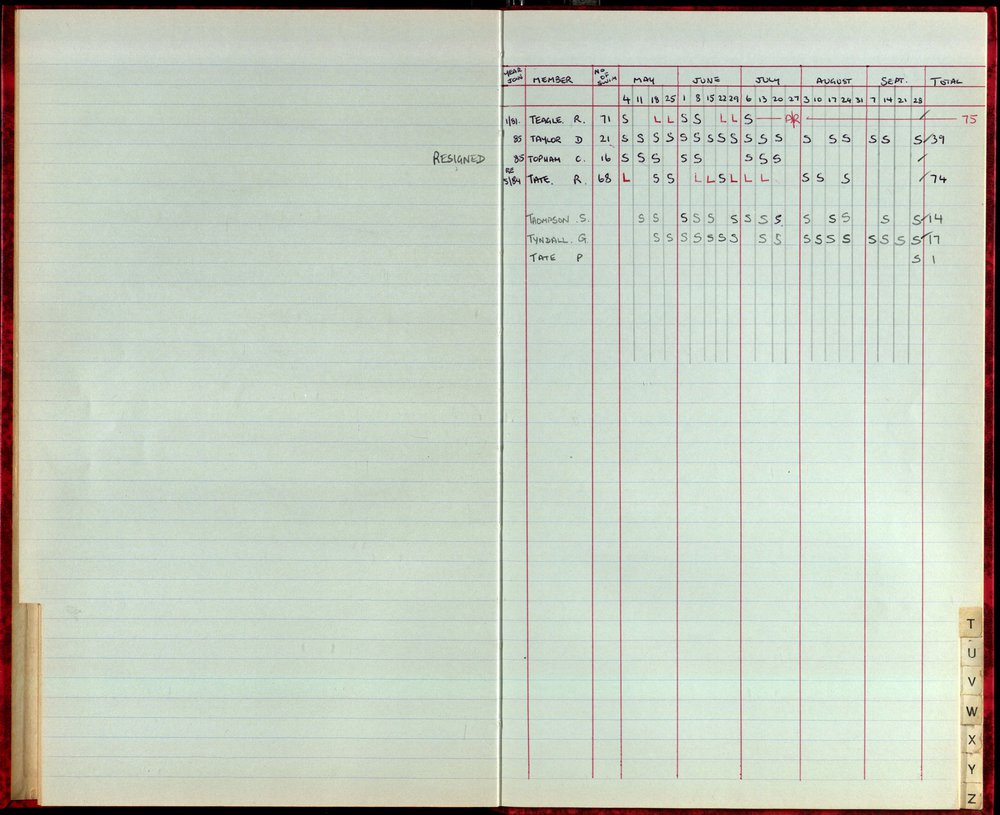 YEAR JOIN MEMBER NO OF SWIM MAY JUNE JULY AUGUST SEPT. TOTAL
4 11 18 25 1 8 15 22 29 6 13 20 27 3 10 17 24 31 7 14 21 28
1/81. TEAGLE. R. 71 S L L S S L L S 75
85 TAYLOR D 21 S S S S S S S S S S S S S S S S S S 39
RESIGNED 85 TOPHAM C. 16 S S S S S S S S
RE 5/84 TATE. R. 68 L S S L L S L L L S S S 74
THOMPSON S. S S S S S S S S S S S S S S 14
TYNDALL. G. S S S S S S S S S S S S S S S S S 17
TATE P S 1
T
U
V
W
X
Y
Z